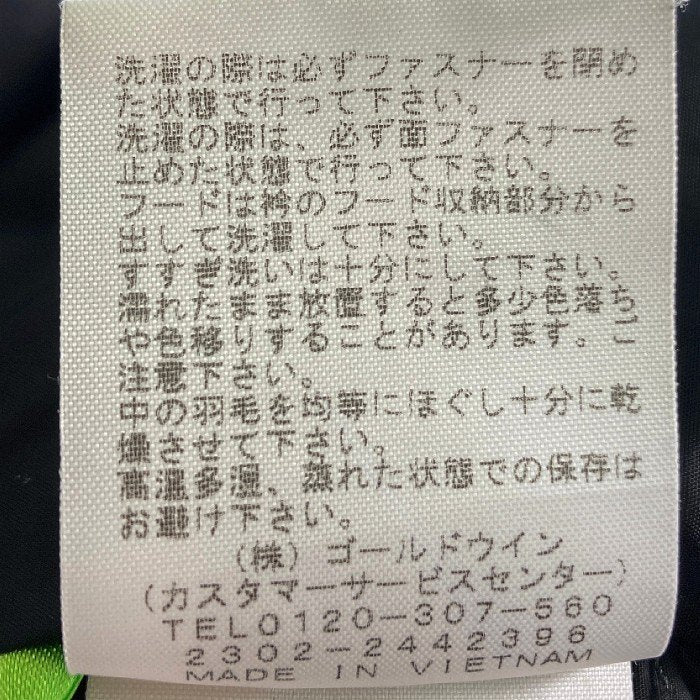 洗濯の際は必ずファスナーを閉め
た状態で行って下さい。
洗濯の際は、必ず面ファスナーを
止めた状態で行って下さい。
フードは衿のフード収納部分から
出して洗濯して下さい。
すすぎ洗いは十分にして下さい。
濡れたまま放置すると多少色落ち
や色移りすることがあります。ご
注意下さい。
中の羽毛を均等にほぐし十分に乾
燥させて下さい。
高温多湿、蒸れた状態での保存は
お避け下さい。
(株) ゴールドウイン
(カスタマーサービスセンター)
TEL0120-307-560
2302-2442396
MADE IN VIETNAM